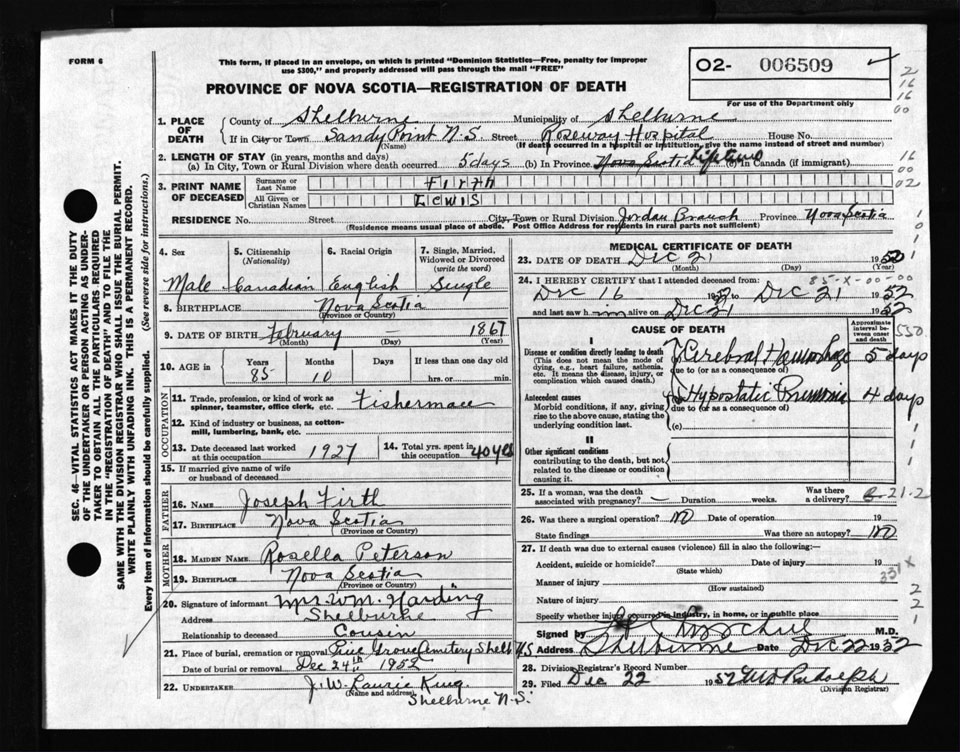 FORM 6
This form, if placed in an envelope, on which is printed "Dominion Statistics—Free, penalty for improper
use $300," and properly addressed will pass through the mail "FREE"
O2- 006509
PROVINCE OF NOVA SCOTIA—REGISTRATION OF DEATH
For use of the Department only
1. PLACE OF DEATH
County of Shelburne Municipality of Shelburne
If in City or Town Sandy Point N.S. Street Roseway Hospital House No.
(Name) (If death occurred in a hospital or institution, give the name instead of street and number)
2. LENGTH OF STAY (in years, months and days)
(a) In City, Town or Rural Division where death occurred 5 days (b) In Province Nova Scotia Lifetime (c) In Canada (if immigrant)
3. PRINT NAME OF DECEASED
Surname or Last Name Firth
All Given or Christian Names Lewis
RESIDENCE No. Street City, Town or Rural Division Jordan Branch Province Nova Scotia
(Residence means usual place of abode. Post Office Address for residents in rural parts not sufficient)
4. Sex Male
5. Citizenship (Nationality) Canadian
6. Racial Origin English
7. Single, Married, Widowed or Divorced (write the word) Single
8. BIRTHPLACE Nova Scotia
(Province or Country)
9. DATE OF BIRTH February — 1867
(Month) (Day) (Year)
10. AGE in Years 85 Months 10 Days If less than one day old hrs. or min.
OCCUPATION
11. Trade, profession, or kind of work as spinner, teamster, office clerk, etc. Fisherman
12. Kind of industry or business, as cotton-mill, lumbering, bank, etc.
13. Date deceased last worked at this occupation 1927
14. Total yrs. spent in this occupation 40 yrs
15. If married give name of wife or husband of deceased
FATHER
16. NAME Joseph Firth
17. BIRTHPLACE Nova Scotia
(Province or Country)
MOTHER
18. MAIDEN NAME Rosella Peterson
19. BIRTHPLACE Nova Scotia
(Province or Country)
20. Signature of informant Mrs. Wm. Harding
Address Shelburne
Relationship to deceased Cousin
21. Place of burial, cremation or removal Pine Grove Cemetery Shelb N.S
Date of burial or removal Dec 24th 1952
22. UNDERTAKER J. W. Laurie King.
(Name and address) Shelburne N.S.
MEDICAL CERTIFICATE OF DEATH
23. DATE OF DEATH Dec 21 1952
(Month) (Day) (Year)
85-X-00-00
24. I HEREBY CERTIFY that I attended deceased from:
Dec 16 1952 to Dec 21 1952
and last saw him alive on Dec 21 1952
CAUSE OF DEATH
Approximate interval between onset and death
I
Disease or condition directly leading to death
(This does not mean the mode of dying, e.g., heart failure, asthenia, etc. It means the disease, injury, or complication which caused death.)
Cerebral Haemorrhage 5 days
due to (or as a consequence of)
Antecedent causes
Morbid conditions, if any, giving rise to the above cause, stating the underlying condition last.
Hypostatic Pneumonia 4 days
due to (or as a consequence of)
(c)
II
Other significant conditions
contributing to the death, but not related to the disease or condition causing it.
25. If a woman, was the death associated with pregnancy? — Duration weeks. Was there a delivery?
26. Was there a surgical operation? No Date of operation 19
State findings Was there an autopsy? No
27. If death was due to external causes (violence) fill in also the following:—
Accident, suicide or homicide? Date of injury 19
(State which)
331X
Manner of injury
(How sustained)
Nature of injury
Specify whether injury occurred in industry, in home, or in public place
Signed by M.D.
Address Shelburne Date Dec 22 1952
28. Division Registrar's Record Number
29. Filed Dec 22 1952 Rudolph
(Division Registrar)
SEC. 46 — VITAL STATISTICS ACT MAKES IT THE DUTY
OF THE UNDERTAKER OR PERSON ACTING AS UNDER-
TAKER TO OBTAIN ALL THE PARTICULARS REQUIRED
IN THE "REGISTRATION OF DEATH" AND TO FILE THE
SAME WITH THE DIVISION REGISTRAR WHO SHALL ISSUE THE BURIAL PERMIT.
WRITE PLAINLY WITH UNFADING INK. THIS IS A PERMANENT RECORD.
Every item of information should be carefully supplied. (See reverse side for instructions.)